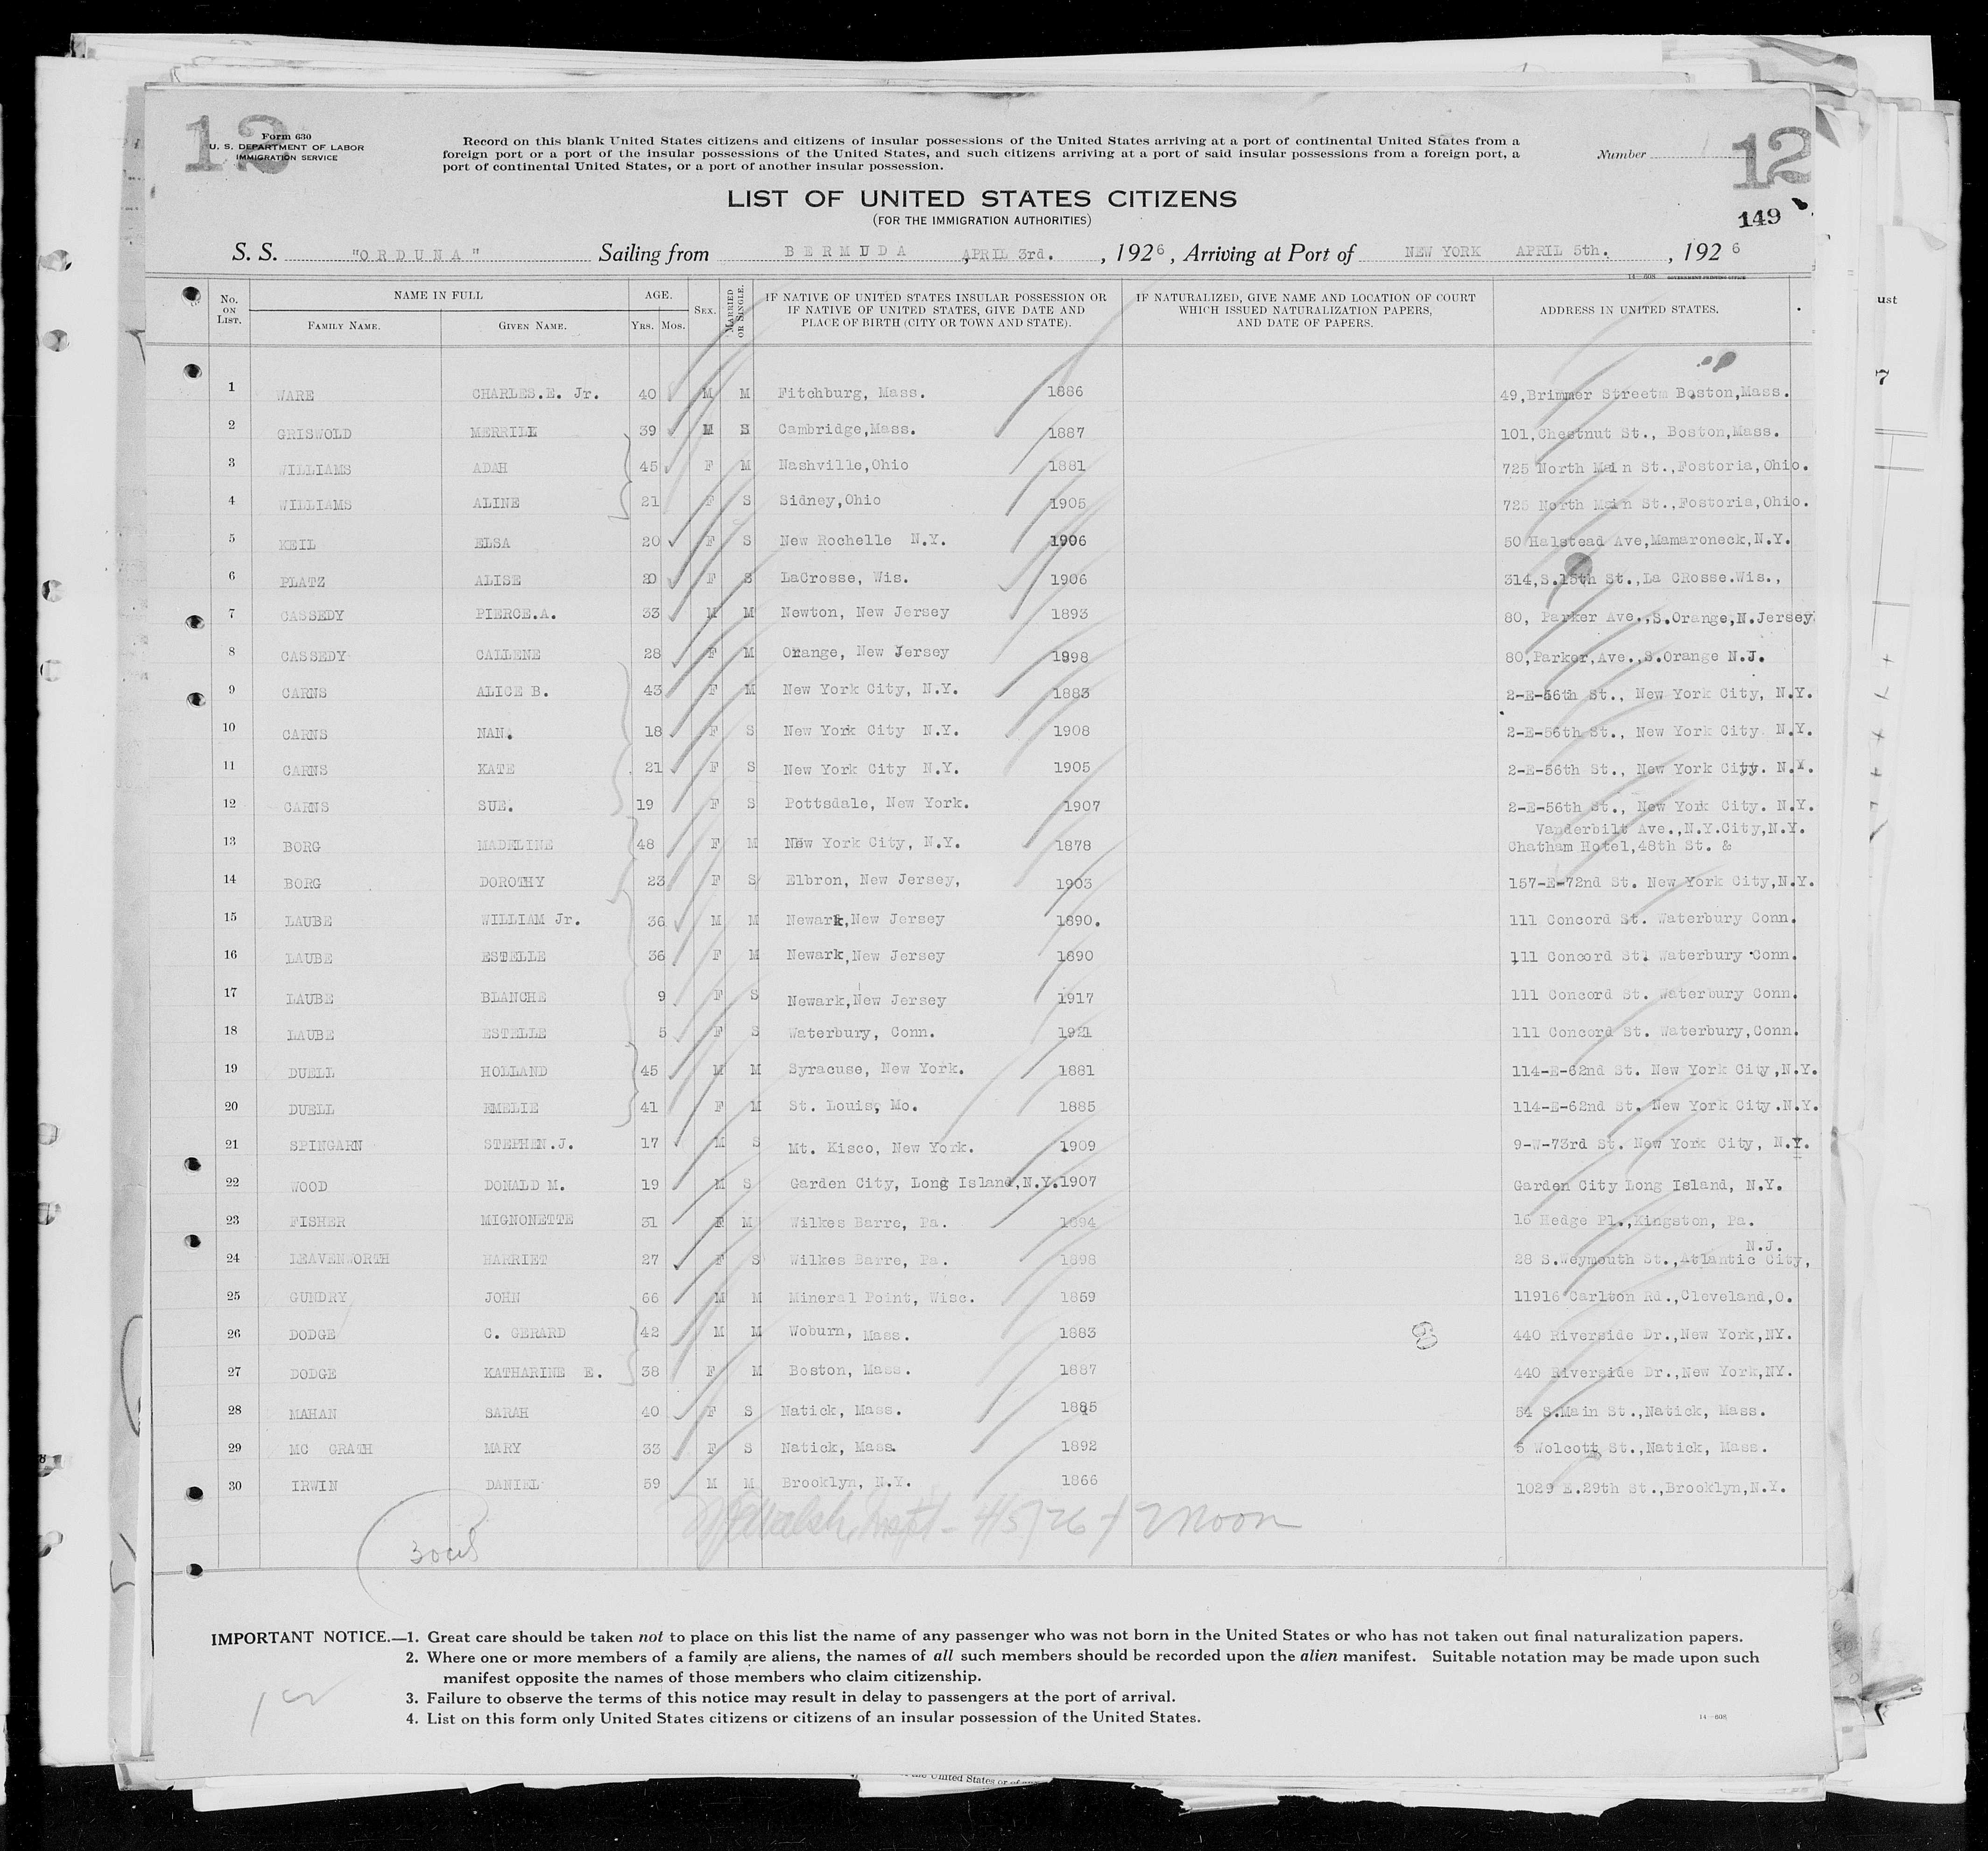 12
Form 630
U. S. DEPARTMENT OF LABOR
IMMIGRATION SERVICE
Record on this blank United States citizens and citizens of insular possessions of the United States arriving at a port of continental United States from a
foreign port or a port of the insular possessions of the United States, and such citizens arriving at a port of said insular possessions from a foreign port, a
port of continental United States, or a port of another insular possession.
Number
12
149
LIST OF UNITED STATES CITIZENS
(FOR THE IMMIGRATION AUTHORITIES)
S. S. "ORDUNA" Sailing from BERMUDA , APRIL 3rd. , 1926 , Arriving at Port of NEW YORK APRIL 5th. , 1926
14-608 GOVERNMENT PRINTING OFFICE
No. ON LIST. NAME IN FULL FAMILY NAME. GIVEN NAME. AGE. Yrs. Mos. SEX. MARRIED OR SINGLE. IF NATIVE OF UNITED STATES INSULAR POSSESSION OR IF NATIVE OF UNITED STATES, GIVE DATE AND PLACE OF BIRTH (CITY OR TOWN AND STATE). IF NATURALIZED, GIVE NAME AND LOCATION OF COURT WHICH ISSUED NATURALIZATION PAPERS, AND DATE OF PAPERS. ADDRESS IN UNITED STATES.
1 WARE CHARLES.E. Jr. 40 M M Fitchburg, Mass. 1886 49,Brimmer Streetm Boston,Mass.
2 GRISWOLD MERRILL 39 M S Cambridge,Mass. 1887 101,Chestnut St., Boston,Mass.
3 WILLIAMS ADAH 45 F M Nashville,Ohio 1881 725 North Main St.,Fostoria,Ohio.
4 WILLIAMS ALINE 21 F S Sidney,Ohio 1905 725 North Main St.,Fostoria,Ohio.
5 KEIL ELSA 20 F S New Rochelle N.Y. 1906 50 Halstead Ave,Mamaroneck,N.Y.
6 PLATZ ALISE 20 F S LaCrosse, Wis. 1906 314,S.15th St.,La CRosse.Wis.,
7 CASSEDY PIERCE.A. 33 M M Newton, New Jersey 1893 80, Parker Ave.,S.Orange,N.Jersey
8 CASSEDY CALLENE 28 F M Orange, New Jersey 1998 80,Parker,Ave.,S.Orange N.J.
9 CARNS ALICE B. 43 F M New York City, N.Y. 1883 2-E-56th St., New York City, N.Y.
10 CARNS NAN. 18 F S New York City N.Y. 1908 2-E-56th St., New York City N.Y.
11 CARNS KATE 21 F S New York City N.Y. 1905 2-E-56th St., New York City. N.Y.
12 CARNS SUE. 19 F S Pottsdale, New York. 1907 2-E-56th St., New York City. N.Y.
Vanderbilt Ave.,N.Y.City,N.Y.
13 BORG MADELINE 48 F M New York City, N.Y. 1878 Chatham Hotel,48th St. &
14 BORG DOROTHY 23 F S Elbron, New Jersey, 1903 157-E-72nd St. New York City,N.Y.
15 LAUBE WILLIAM Jr. 36 M M Newark,New Jersey 1890. 111 Concord St. Waterbury Conn.
16 LAUBE ESTELLE 36 F M Newark,New Jersey 1890 111 Concord St. Waterbury Conn.
17 LAUBE BLANCHE 9 F S Newark,New Jersey 1917 111 Concord St. Waterbury Conn.
18 LAUBE ESTELLE 5 F S Waterbury, Conn. 1921 111 Concord St. Waterbury,Conn.
19 DUELL HOLLAND 45 M M Syracuse, New York. 1881 114-E-62nd St. New York City,N.Y.
20 DUELL EMELIE 41 F M St. Louis, Mo. 1885 114-E-62nd St. New York City.N.Y.
21 SPINGARN STEPHEN.J. 17 M S Mt. Kisco, New York. 1909 9-W-73rd St. New York City, N.Y.
22 WOOD DONALD M. 19 M S Garden City, Long Island,N.Y. 1907 Garden City Long Island, N.Y.
23 FISHER MIGNONETTE 31 F M Wilkes Barre, Pa. 1894 15 Hedge Pl.,Kingston, Pa.
N.J.
24 LEAVENWORTH HARRIET 27 F S Wilkes Barre, Pa. 1898 28 S.Weymouth St.,Atlantic City,
25 GUNDRY JOHN 66 M M Mineral Point, Wisc. 1859 11916 Carlton Rd.,Cleveland,O.
26 DODGE C. GERARD 42 M M Woburn, Mass. 1883 440 Riverside Dr.,New York,NY.
27 DODGE KATHARINE E. 38 F M Boston, Mass. 1887 440 Riverside Dr.,New York,NY.
28 MAHAN SARAH 40 F S Natick, Mass. 1885 54 S.Main St.,Natick, Mass.
29 MC GRATH MARY 33 F S Natick, Mass. 1892 5 Wolcott St.,Natick, Mass.
30 IRWIN DANIEL 59 M M Brooklyn, N.Y. 1866 1029 E.29th St.,Brooklyn,N.Y.
Walsh, Inspt - 4/5/26 + Moon
IMPORTANT NOTICE.—1. Great care should be taken not to place on this list the name of any passenger who was not born in the United States or who has not taken out final naturalization papers.
2. Where one or more members of a family are aliens, the names of all such members should be recorded upon the alien manifest. Suitable notation may be made upon such
manifest opposite the names of those members who claim citizenship.
3. Failure to observe the terms of this notice may result in delay to passengers at the port of arrival.
4. List on this form only United States citizens or citizens of an insular possession of the United States.
14-608